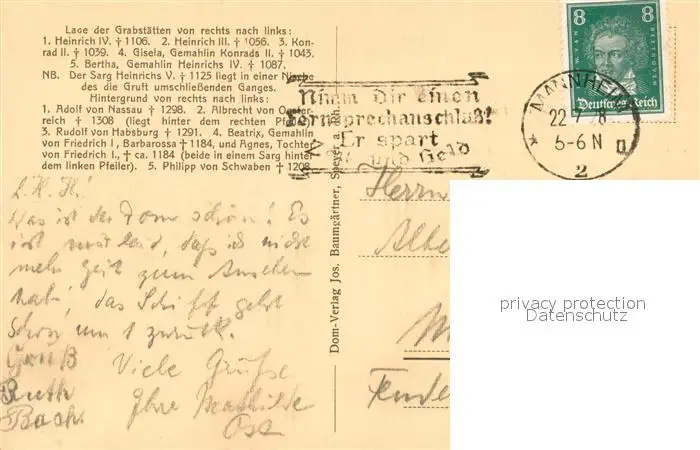 Lage der Grabstätten von rechts nach links:
1. Heinrich IV. † 1106. 2. Heinrich III. † 1056. 3. Kon-
rad II. † 1039. 4. Gisela, Gemahlin Konrads II. † 1043.
5. Bertha, Gemahlin Heinrichs IV. † 1087.
NB. Der Sarg Heinrichs V. † 1125 liegt in einer Nische
des die Gruft umschließenden Ganges.
Hintergrund von rechts nach links:
1. Adolf von Nassau † 1298. 2. Albrecht von Oester-
reich † 1308 (liegt hinter dem rechten Pfeiler).
3. Rudolf von Habsburg † 1291. 4. Beatrix, Gemahlin
von Friedrich I., Barbarossa † 1184, und Agnes, Tochter
von Friedrich I., † ca. 1184 (beide in einem Sarg hinter
dem linken Pfeiler). 5. Philipp von Schwaben † 1208
L. H. H.!
Was ist der Dom schön! Es
ist mir leid, daß ich nicht
mehr Zeit zum Ansehen
hab', das Schiff geht
schon um 1 zurück.
Gruß
Viele Grüße
Ruth
Ihre Mathilde
Bach.
Ost
Dom-Verlag Jos. Baumgärtner, Speyer a. Rh.
Nimm Dir einen
Fernsprechanschluß!
Er spart
und Geld
8 8
Deutsches Reich
MANNHEIM
22.7.28
5-6 N
2
Herrn
Albe
privacy protection
Datenschutz